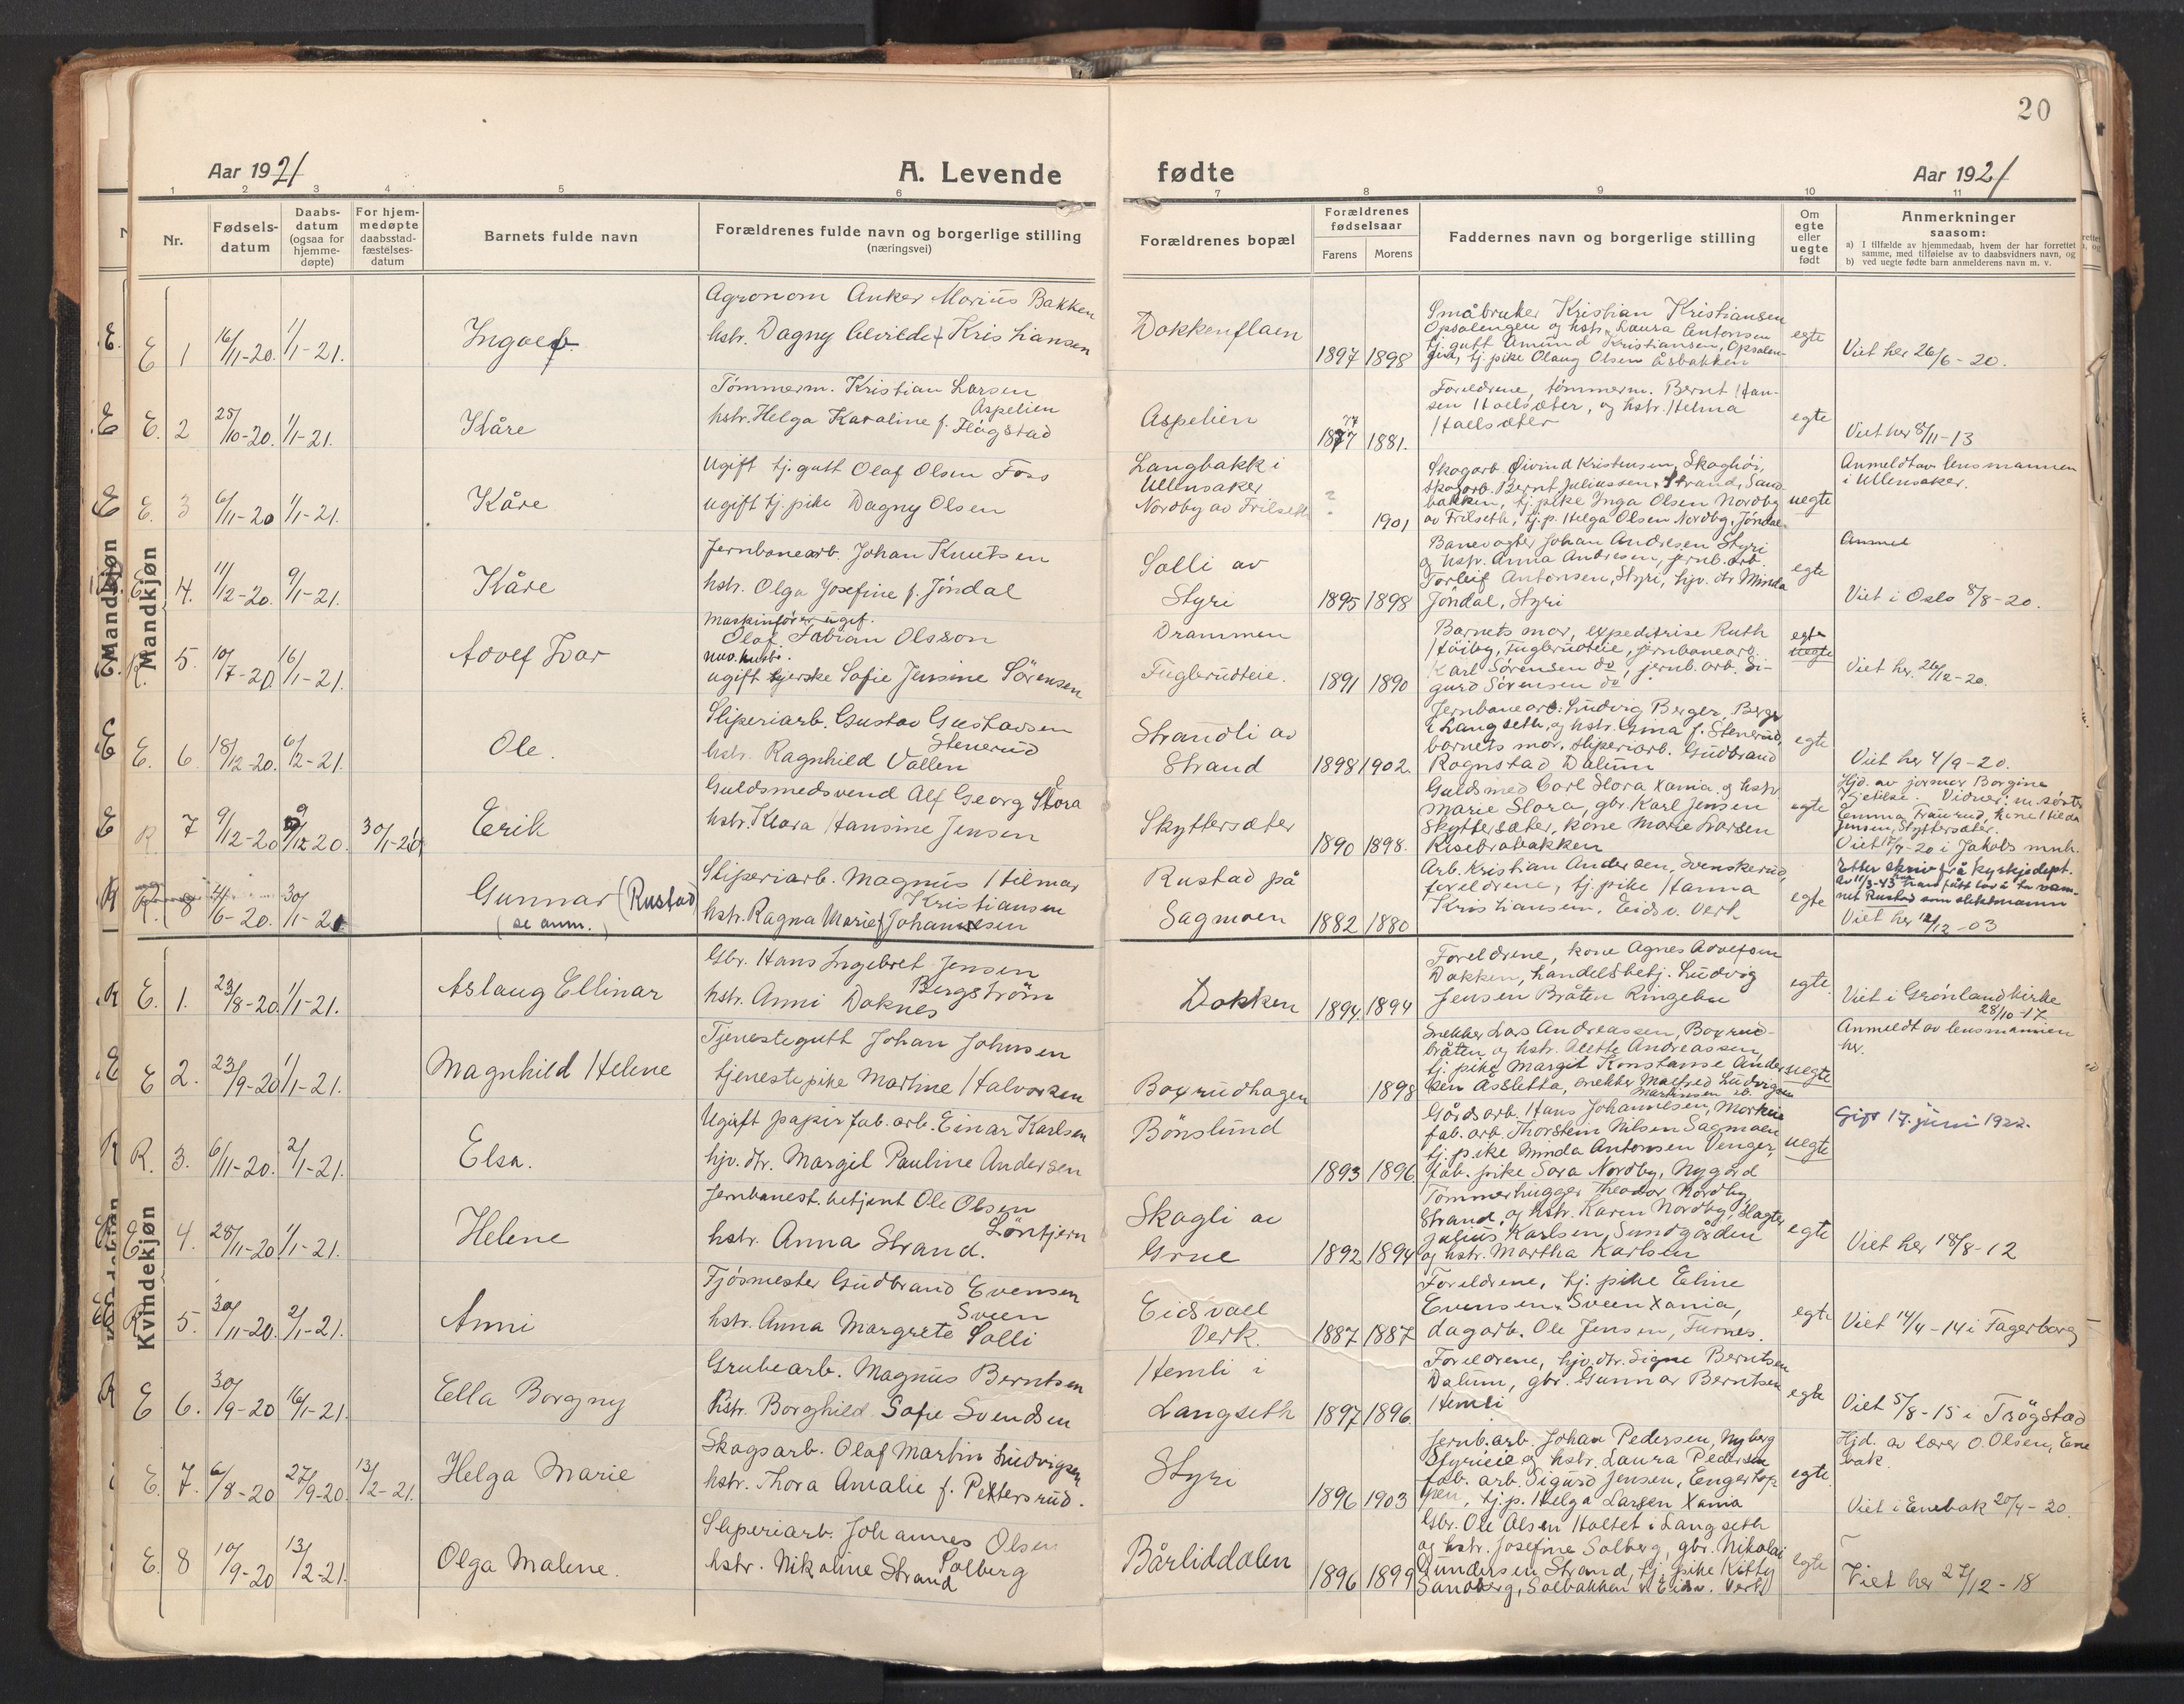 20
Aar 1921
A. Levende
fødte
Aar 1921
1 2 3 4 5 6 7 8 9 10 11
Nr.
Fødsels-
datum
Daabs-
datum
(ogsaa for
hjemme-
døpte)
For hjem-
medøpte
daabsstad-
fæstelses-
datum
Barnets fulde navn
Forældrenes fulde navn og borgerlige stilling
(næringsvei)
Forældrenes bopæl
Forældrenes
fødselsaar
Farens Morens
Faddernes navn og borgerlige stilling
Om
egte
eller
uegte
født
Anmerkninger
saasom:
a) I tilfælde av hjemmedaab, hvem der har forrettet
samme, med tilføielse av to daabsvidners navn, og
b) ved uegte fødte barn anmelderens navn m. v.
Mandkjøn
E 1 16/11-20. 1/1-21.
Ingolf
Agronom Anker Marius Bakken
hstr. Dagny Alvilde f. Kristiansen
Dokkenflaen
1897 1898
Småbruker Kristian Kristiansen
Opsalengen og hstr. Laura Antonsen
tj. gutt Amund Kristiansen, Opsalen-
gen, tj. pike Olaug Olsen Åsbakken
egte
Viet her 26/6-20.
E. 2 25/10-20. 1/1-21.
Kåre
Tømmerm. Kristian Larsen
Aspelien
hstr. Helga Karoline f. Flågstad
Aspelien
77
1877 1881.
Foreldrene, tømmerm. Bernt Han-
sen Hoelsæter, og hstr. Helma
Hoelsæter
egte
Viet her 8/11-13
E. 3 6/11-20 1/1-21.
Kåre
Ugift tj. gutt Olaf Olsen Foss
ugift tj. pike Dagny Olsen
Langbakk i
Ullensaker
Nordby av Frilseth
? 1901
Skogarb. Øivind Kristensen, Skoghøi,
skogarb. Bernt Juliussen, Strand, Sand-
bakken, tj. pike Inga Olsen Nordby
av Frilseth, tj. p. Helga Olsen Nordbg, Jøndal
uegte
Anmeldt av lensmannen
i Ullensaker.
E. 4. 11/12-20. 9/1-21.
Kåre
Jernbanearb. Johan Knutsen
hstr. Olga Josefine f. Jøndal
Solli av
Styri
1895 1898
Banevogter Johan Andresen Styri
og hstr. Anna Andresen, jernb. arb.
Torleif Antonsen, Styri, hjv. dtr Minda
Jøndal, Styri
egte
Anmel
Viet i Oslo 8/8-20.
R. 5. 10/7-20. 16/1-21.
Adolf Ivar
Maskinfører, ugif.
Olaf Fabian Olsson
nuv. hustr.
ugift syerske Sofie Jensine Sörensen
Drammen
Fuglerudteie.
1891 1890
Barnets mor, expeditrise Ruth
Høiby, Fuglerudteie, jernbanearb.
Karl Sørensen do, jernb. arb. Si-
gurd Sørensen do
egte
uegte
Viet her 26/12-20.
E. 6. 18/12-20. 6/2-21.
Ole.
Sliperiarb. Gustav Gustavsen
Stenerud
hstr. Ragnhild Vallen
Strandli av
Strand
1898 1902.
Jernbanearb. Ludvig Berger, Berger
i Langseth, og hstr. Gina f. Stenerud,
barnets mor, sliperiarb. Gudbrand
Rognstad Dalum
egte
Viet her 4/9-20.
R 7 9/12-20 9/12 20. 30/1-21
Erik
Guldsmedsvend Alf Georg Stora
hstr. Klara Hansine Jensen
Skyttersæter
1890 1898.
Guldsmed Carl Stora Xania. og hstr
Marie Stora, gbr. Karl Jensen
Skyttersæter, kone Marie Larsen
Risebrobakken
egte
Hjd. av jormor Borgine
Kjetilse. Vidner: m. sørts
Emma Traurud, kone Hilda
Jensen, Skyttersæter.
Viet 17/7-20 i Jakobs mnh.
R. 8 4/6-20. 30/1-21
Gunnar (Rustad)
(se anm.)
Sliperiarb. Magnus Hilmar
Kristiansen
hstr. Ragna Marie f. Johannesen
Rustad på
Sagmoen
1882 1880
Arb. Kristian Andersen, Svenskerud,
foreldrene, tj. pike Hanna
Kristiansen. Eidsv. Verk
egte
Etter skriv frå kyrkjedept.
av 11/3-43 har han fått lov å ta nam-
net Rustad som slektsnamn
Viet her 12/12-03
Kvindekjøn
E. 1. 23/8-20. 1/1-21.
Aslaug Ellinor
Gbr. Hans Ingebret Jensen
Bergstrøm
hstr. Anni Doknes
Dokken
1894. 1894
Foreldrene, kone Agnes Adolfsen
Dokken, handelsbetj. Ludvig
Jensen Bråten Ringebu
egte.
Viet i Grønland kirke
28/10-17
E 2. 23/9-20 1/1-21.
Magnhild Helene
Tjenestegutt Johan Johnsen
tjenestepike Martine Halvorsen
Boxrudhagen
1898
Snekker Lars Andreassen, Boxrud-
bråten og hstr. Alette Andreassen,
tj. pike Margit Konstanse Ander-
sen Åsletta, snekker Malfred Ludvigsen
uegte
Anmeldt av lensmannen
her.
R. 3. 6/11-20. 2/1-21.
Elsa.
Ugift papirfab. arb. Einar Karlsen
hjv. dtr. Margit Pauline Andersen
Bönslund
1893 1896
Gårdsarb. Hans Johannesen, Morkua
fab. arb. Thorstein Nilsen Sagmoen
tj. pike Minda Antonsen Venger,
fab. pike Sara Nordby, Nygård
uegte
Gift 17. juni 1922.
E. 4. 28/11-20 1/1-21.
Helene
Jernbanest. betjent Ole Olsen
Löntjern
hstr. Anna Strand.
Skogli av
Grue
1892 1894
Tømmerhugger Theodor Nordby,
Strand, og hstr. Karen Nordby, Slagter
Julius Karlsen, Sundgården
og hstr. Martha Karlsen
egte
Viet her 18/8-12
R 5. 30/11-20. 2/1-21.
Anni
Fjösmester Gudbrand Evensen
Sveen
hstr. Anna Margrete Solli
Eidsvoll
Verk.
1887 1887
Foreldrene, tj. pike Eline
Evensen Sveen Xania,
dagarb. Ole Jensen, Furnes.
egte
Viet 14/4-14 i Fagerborg
E 6. 30/9-20 16/1-21.
Ella Borgny
Grubearb. Magnus Berntsen
hstr. Borghild Sofie Svendsen
Hemli i
Langseth
1897 1896.
Foreldrene, hjv. dtr. Signe Berntsen
Dalum, gbr. Gunnar Berntsen
Hemli
egte
Viet 5/8-15 i Trögstad
E. 7. 6/8-20 27/9-20 13/2-21.
Helga Marie
Skogsarb. Olaf Martin Ludvigsen
hstr. Thora Amalie f. Pettersrud.
Styri
1896 1903
Jernb. arb. Johan Pedersen, Nyberg
Styrieie og hstr. Laura Pedersen
fab. arb. Sigurd Jensen, Engertop-
pen, tj. p. Helga Larsen Xania
egte
Hjd. av lærer O. Olsen, Ene
bak.
Viet i Enebak 20/4-20.
E. 8 10/9-20 13/2-21.
Olga Malene.
Sliperiarb. Johannes Olsen
Solberg
hstr. Nikoline Strand
Bårliddalen
1896 1899
Gbr. Ole Olsen Holtet i Langseth
og hstr. Josefine Solberg, gbr. Nikolai
Gundersen Strand, tj. pike Kitty
Sandberg, Solbakken v. Eidsv. Verk
egte
Viet her 27/12-18